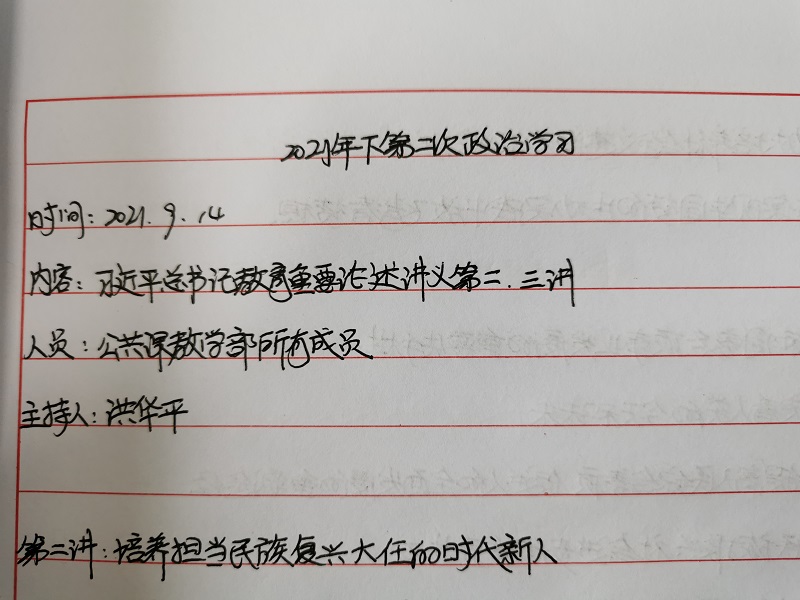 2021年下第二次政治学习
时间：2021.9.14
内容：习近平总书记教育重要论述讲义第二.三讲
人员：公共课教学部所有成员
主持人：洪华平
第二讲：培养担当民族复兴大任的时代新人